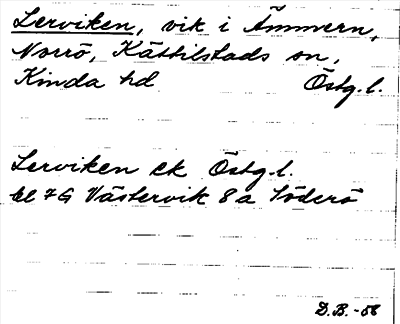 Lerviken, vik i Ämmern,
Norrö, Kättilstads sn,
Kinda hd Östg. l.
Lerviken ek Östg. l.
bl 7G Västervik 8a Söderö
D.B.-58